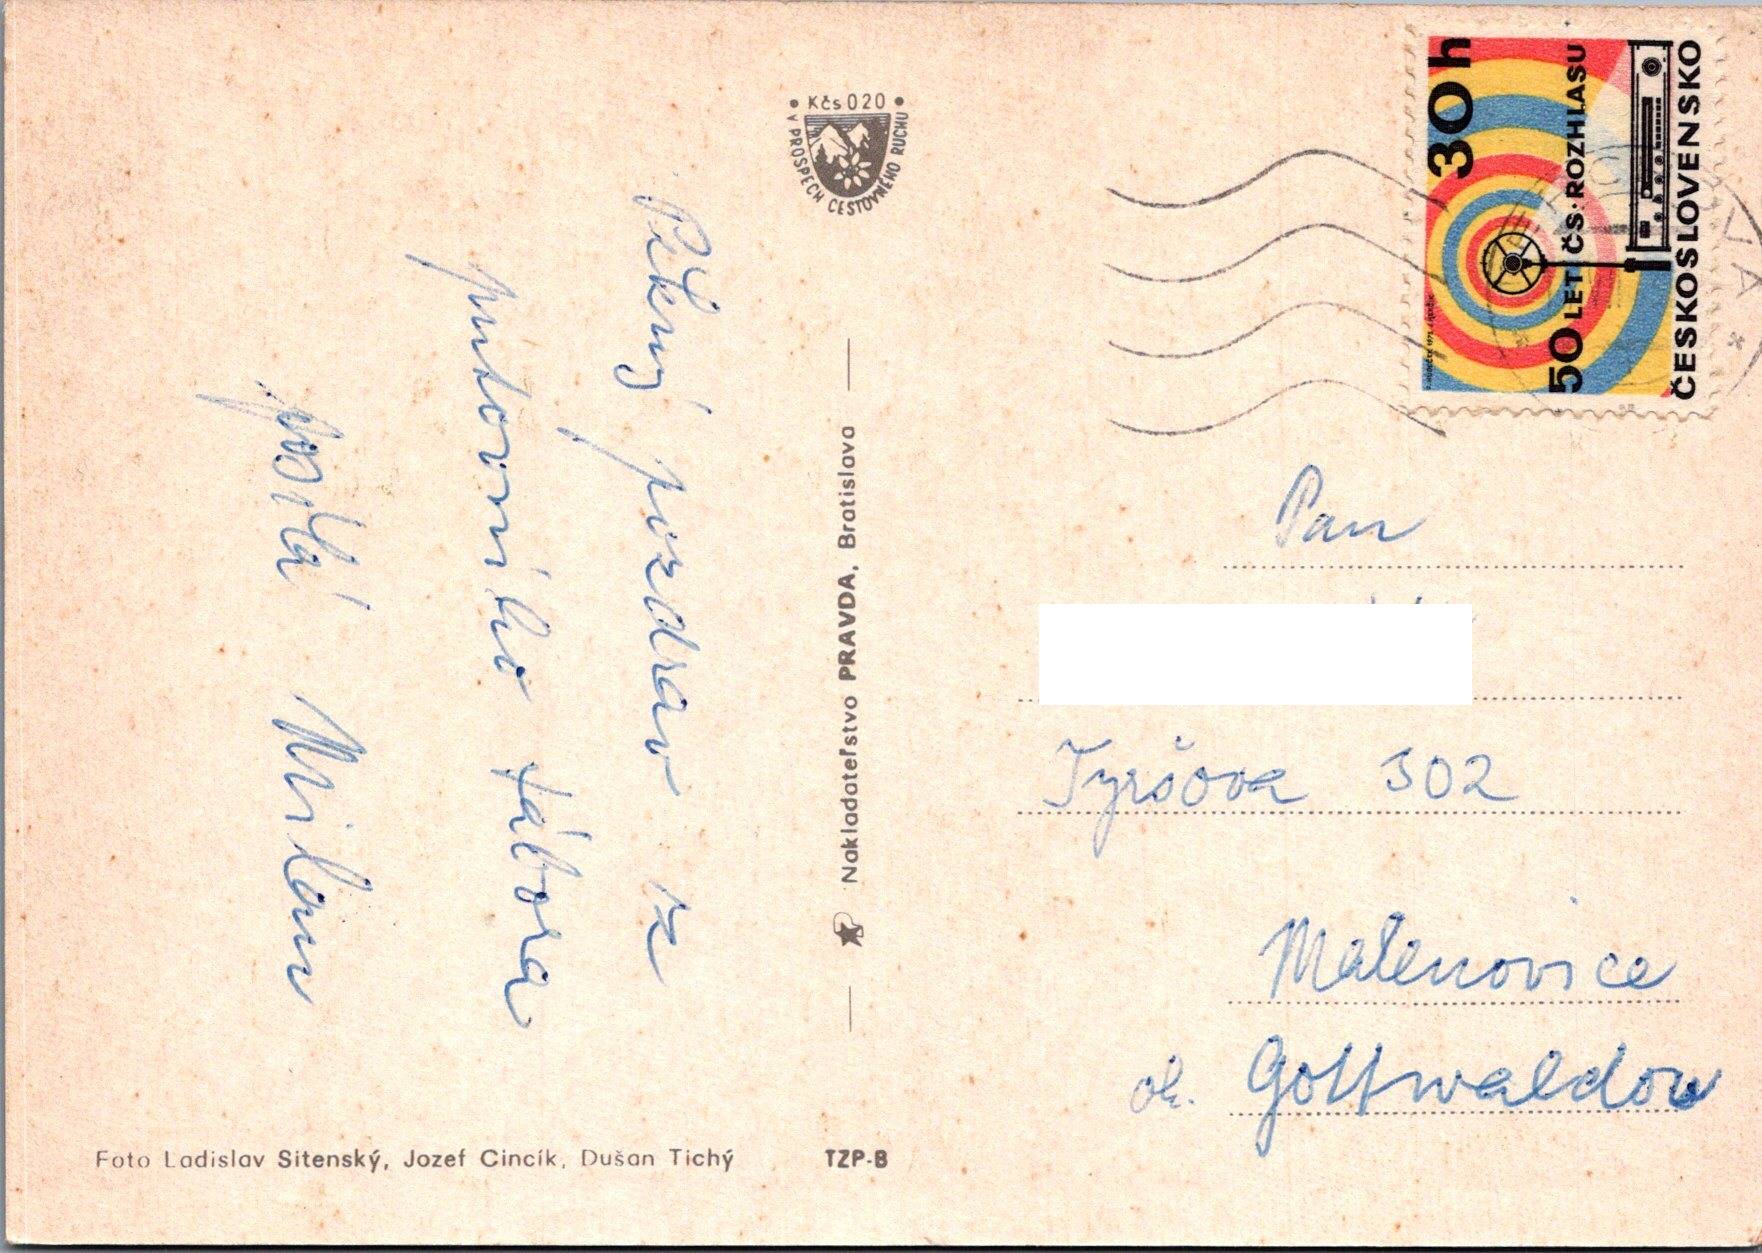 Pěkný pozdrav z
putovního tábora
posílá Milan
• Kčs 0 20 •
V PROSPECH CESTOVNÉHO RUCHU
Nakladateľstvo PRAVDA, Bratislava
30 h
50 LET ČS. ROZHLASU
ČESKOSLOVENSKO
Pan
Tyršova 302
Malenovice
ok. Gottwaldov
Foto Ladislav Sitenský, Jozef Cincík, Dušan Tichý
TZP-B